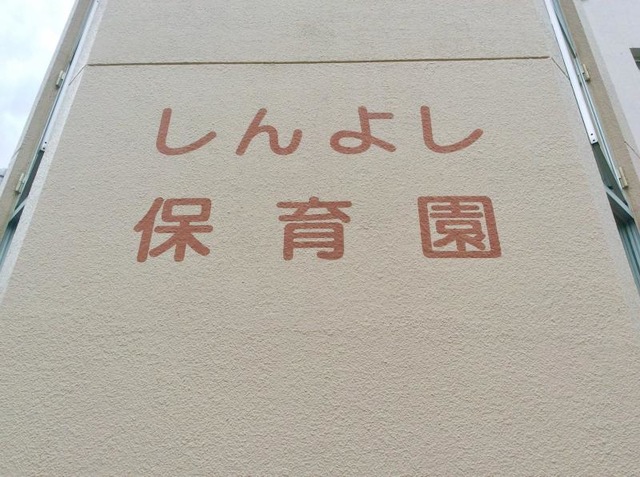 しんよし
保育園